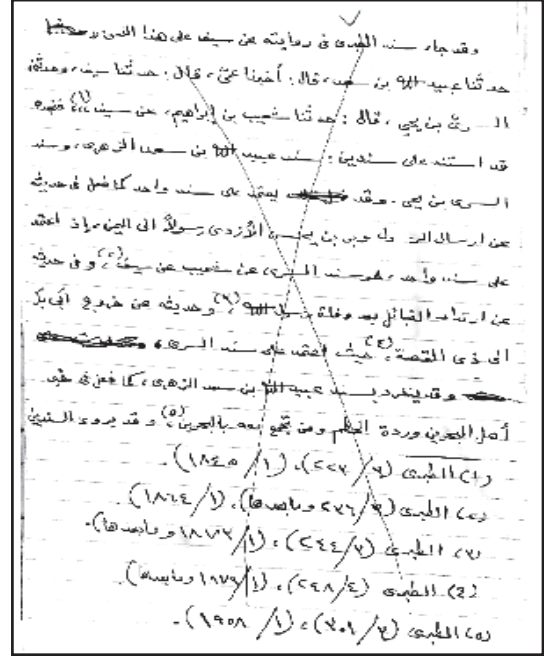 وقد جاء سند الطبرى فى روايته عن سيف على هذا النحو
حدثنا عبيد الله بن سعد، قال: أخبرنا عمى، قال: حدثنا سيف، وحدثنى
السرى بن يحيى، قال: حدثنا شعيب بن إبراهيم، عن سيف (١)، فهو
قد استند على سندين: سند عبيد الله بن سعد الزهرى، وسند
السرى بن يحيى. وقد يعتمد على سند واحد كما فعل فى حديثه
عن ارسال الرسول وبر بن يحنس الأزدى رسولاً الى اليمن، إذ اعتمد
على سند واحد، هو سند السرى عن شعيب عن سيف (٢)، وفى حديثه
عن ارتداد القبائل بعد وفاة رسول الله (٣)، وحديثه عن خروج أبى بكر
الى ذى القصة (٤)، حيث اعتمد على سند السرى.
وقد ينفرد بسند عبيد الله بن سعد الزهرى، كما فعل فى خبر
أهل البحرين وردة الحطم ومن تجمع معه بالبحرين (٥)، وقد يروى السندين
(١) الطبرى (٣/٢٢٧)، (١/١٨٤٥).
(٢) الطبرى (٣/٢٣٦ ومابعدها)، (١/١٨٦٤).
(٣) الطبرى (٣/٢٤٤)، (١/١٨٧٣ ومابعدها).
(٤) الطبرى (٤/٢٤٨)، (١/١٨٧٩ ومابعدها).
(٥) الطبرى (٣/٣٠١)، (١/١٩٥٨).